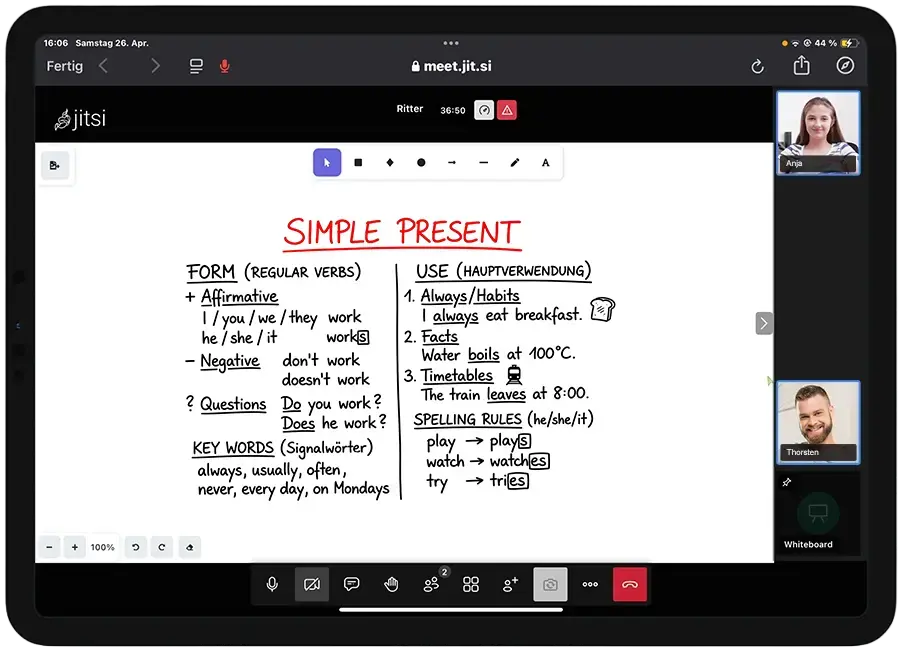 16:06 Samstag 26. Apr.
44 %
Fertig
meet.jit.si
jitsi
Ritter 36:50
A
Anja
SIMPLE PRESENT
FORM (REGULAR VERBS)
+ Affirmative
I / you / we / they work
he / she / it works
- Negative don't work
doesn't work
? Questions Do you work?
Does he work?
KEY WORDS (Signalwörter)
always, usually, often,
never, every day, on Mondays
USE (HAUPTVERWENDUNG)
1. Always/Habits
I always eat breakfast.
2. Facts
Water boils at 100°C.
3. Timetables
The train leaves at 8:00.
SPELLING RULES (he/she/it)
play → plays
watch → watches
try → tries
Thorsten
Whiteboard
100%
2